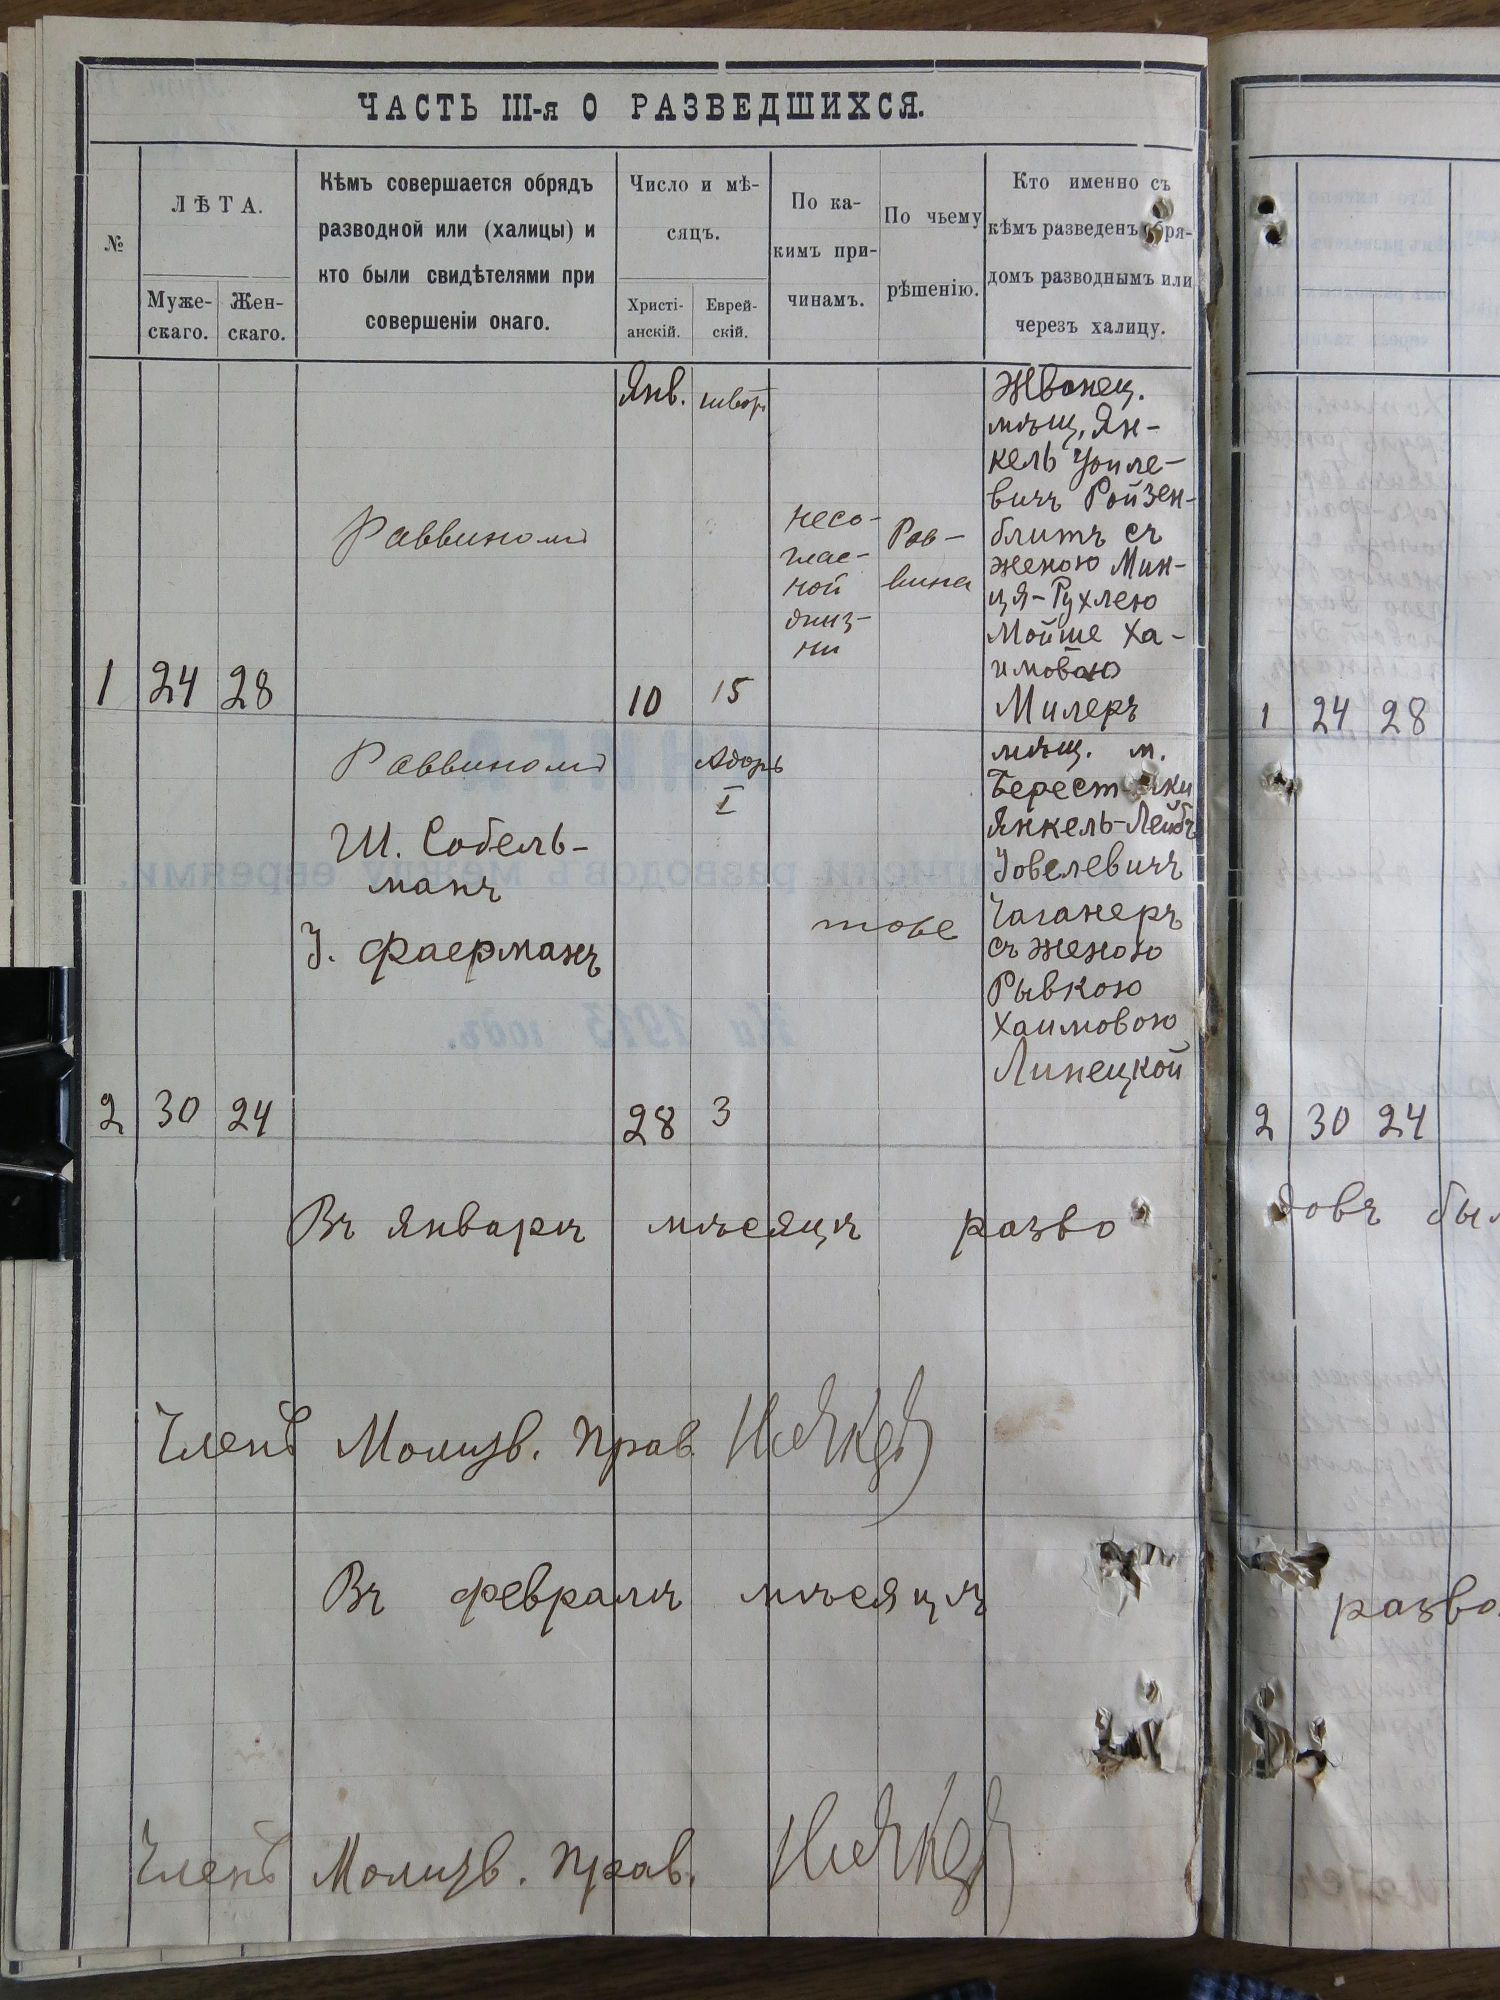 ЧАСТЬ III-я О РАЗВЕДШИХСЯ.
№
ЛѢТА.
Муже-
скаго.
Жен-
скаго.
Кѣмъ совершается обрядъ
разводной или (халицы) и
кто были свидѣтелями при
совершеніи онаго.
Число и мѣ-
сяцъ.
Христі-
анскій.
Еврей-
скій.
По ка-
кимъ при-
чинамъ.
По чьему
рѣшенію.
Кто именно съ
кѣмъ разведенъ обря-
домъ разводнымъ или
черезъ халицу.
1
24
28
Раввиномъ
Янв.
10
шват
15
несо-
глас-
ной
жиз-
ни
Рав-
вина
Жванец.
мѣщ. Ян-
кель
Ройзен-
блитъ съ
женою Мин-
ця-Рухлею
Мойше Ха-
имовою
Милеръ
2
30
24
Раввиномъ
Ш. Собель-
манъ
У. Фаерманъ
28
Адоръ
I
3
тоже
мѣщ. м.
Янкель-Лейбъ
Іовелевичъ
Чаганеръ
съ женою
Рывкою
Хаимовою
Линецкой
Въ январѣ мѣсяцѣ разво
Членъ Молитв. Прав.
Въ февралѣ мѣсяцѣ
Членъ Молитв. Прав.
1 24 28
2 30 24
довъ был
разво